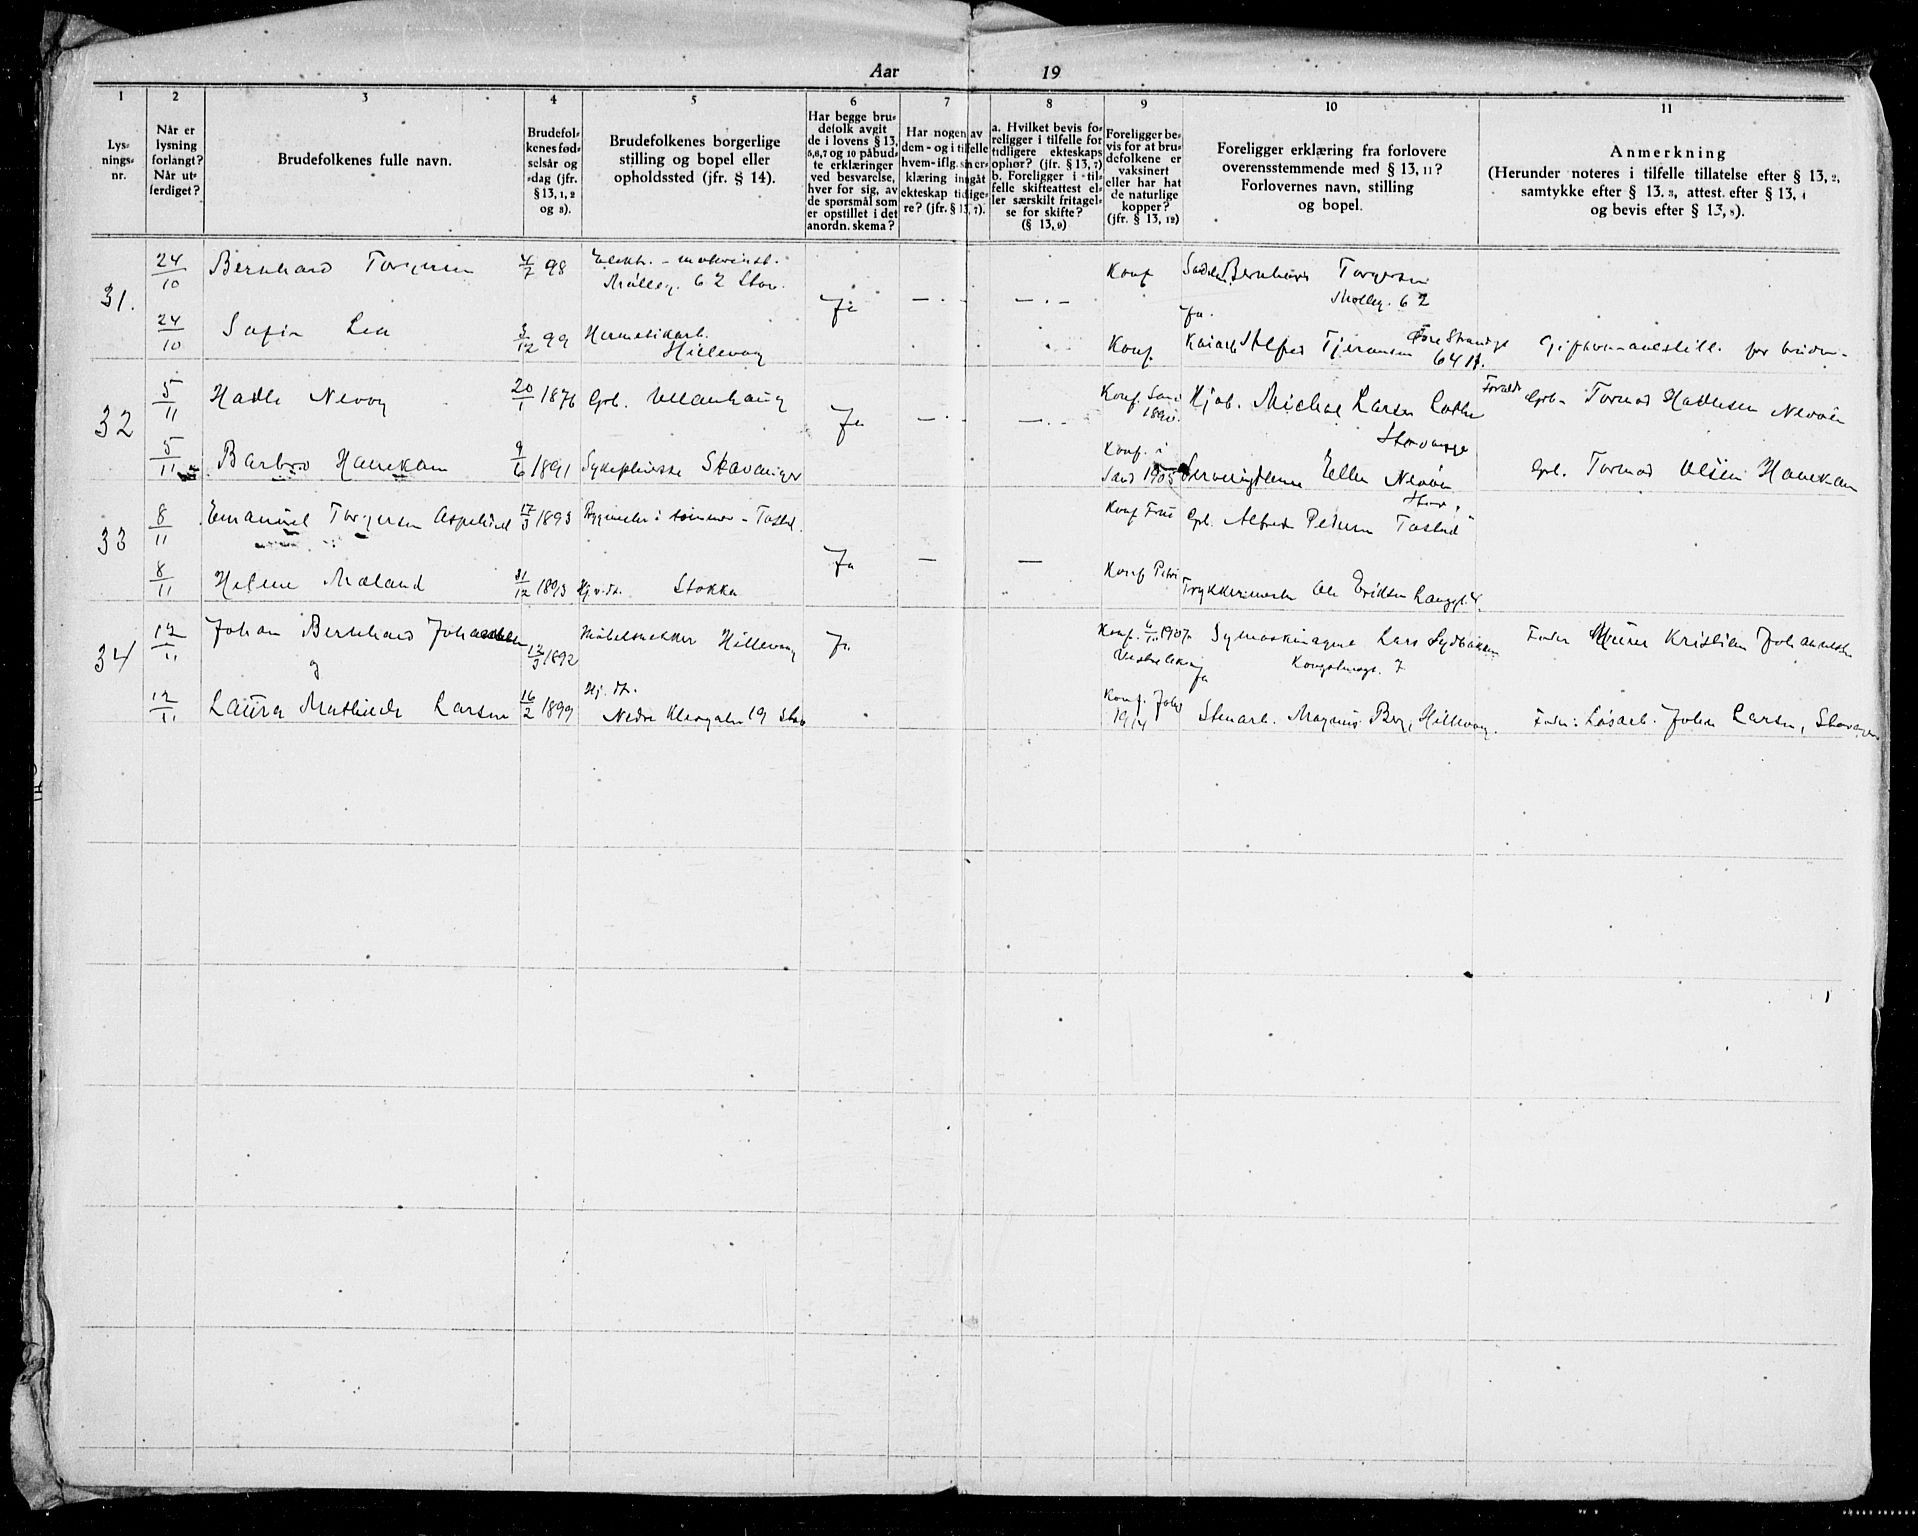 Aar 19
1 2 3 4 5 6 7 8 9 10 11
Lys-
nings-
nr.
Når er
lysning
forlangt?
Når ut-
ferdiget?
Brudefolkenes fulle navn.
Brudefol-
kenes fød-
selsår og
-dag (jfr.
§ 13, 1, 2
og 3).
Brudefolkenes borgerlige
stilling og bopel eller
opholdssted (jfr. § 14).
Har begge bru-
defolk avgit
de i lovens § 13,
6,8,7 og 10 påbud-
te erklæringer
ved besvarelse,
hver for sig, av
de spørsmål som
er opstillet i det
anordn. skema?
Har nogen av
dem - og i tilfelle
hvem - iflg. sin er-
klæring inngåt
ekteskap tidlige-
re? (jfr. § 13, 7).
a. Hvilket bevis fo-
religger i tilfelle for
tidligere ekteskaps
ophør? (jfr. § 13, 7)
b. Foreligger i til-
felle skifteattest el-
ler særskilt fritagel-
se for skifte?
(§ 13, 9)
Foreligger be-
vis for at bru-
defolkene er
vaksinert
eller har hat
de naturlige
kopper?
(jfr. § 13, 12)
Foreligger erklæring fra forlovere
overensstemmende med § 13, 11?
Forlovernes navn, stilling
og bopel.
Anmerkning
(Herunder noteres i tilfelle tillatelse efter § 13, 2,
samtykke efter § 13, 3, attest. efter § 13, 4
og bevis efter § 13, 8).
31. 24/10 Bernhard Torgersen 4/7 98 Elektr. -
Mølleg. 62 Stav. Ja — — Konf Bernhard Torgersen
Mølleg. 62
Ja.
24/10 Sofie Lea 3/12 99 Hermetikarb.
Hillevaag Konf. Alfred Tjeransen
64 II. for bruden
32 5/11 Hadle Nevøy 20/1 1876 Grb. Ullenhaug Ja — — Konf. Sand
1890. Michal Larsen
Stavanger Grb. Tormod Hadlesen Nevøen
5/11 Barbro Hauekam 9/6 1891 Sykepleierske Stavanger Konf. i
Sand 1905 Nevøen
Stav. Grb. Tormod Olsen Hauekam
33 8/11 Emanuel Torgersen 17/3 1893 Byggmester i tømmer - Tasta. Ja — — Konf Frue Grb. Alfred Pedersen Tasta
8/11 Helene Maland 31/12 1893 Hj.v.dt. Stokka Konf Petri Trykkerimester Ole Eriksen
34 12/11 Johan Bernhard Johannessen
og 12/3 1892 Møbelsnekker Hillevaag Ja Konf. 1907
Symaskinagent Lars
Kongsteinsgt. 7
Ja Fader Murer Kristian Johannessen
12/11 Laura Mathilde Larsen 16/2 1899 Hj. dt.
Nedre Klevgaten 19 Stav Konf. Joh.
1914 Stenarb. Magnus Berg, Hillevaag. Fader: Løsarb. John Larsen, Stavanger